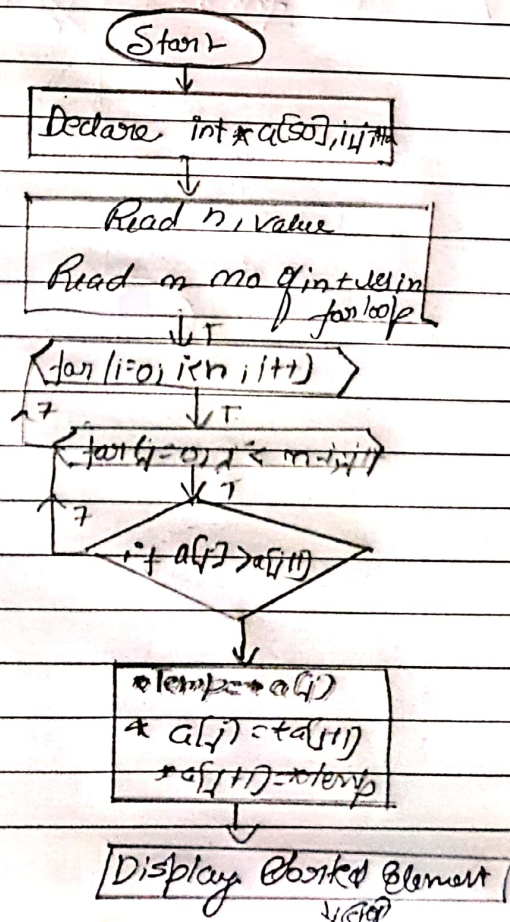 Start
Declare int * a[50], i, j,
Read n, value
Read n no of in
for loop
T
for (i=0; i<n; i++)
T
for (j=0; j < n-i; j++)
T
if a[j] > a[j+1]
*Temp=*a[j]
* a[j] = *a[j+1]
*a[j+1]=*temp
Display Sorted Element